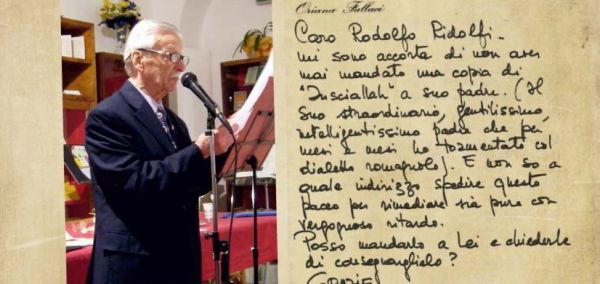 Oriana Fallaci
Caro Rodolfo Ridolfi -
mi sono accorta di non aver
mai mandato una copia di
"Insciallah" a suo padre. (Il
suo straordinario, gentilissimo,
intelligentissimo padre che per
mesi e mesi ho tormentato col
dialetto romagnolo). E non so a
quale indirizzo spedire questo
pacco per rimediare sia pure con
vergognoso ritardo.
Posso mandarlo a Lei e chiederle
di consegnarglielo?
Grazie